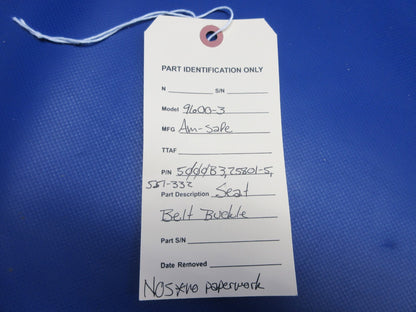 PART IDENTIFICATION ONLY
N S/N
Model 9600-3
MFG Am-Safe
TTAF
P/N 5000B3,75801-5,
551-332
Part Description Seat
Belt Buckle
Part S/N
Date Removed
NOS *no paperwork